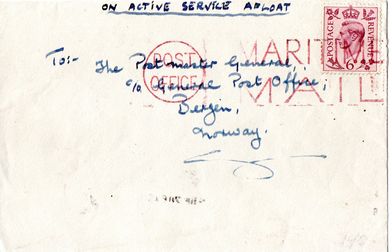 ON ACTIVE SERVICE AFLOAT
POSTAGE REVENUE
6D
POST OFFICE
MARIT
MAIL
To:-
The Postmaster General,
c/o General Post Office,
Bergen,
Norway.